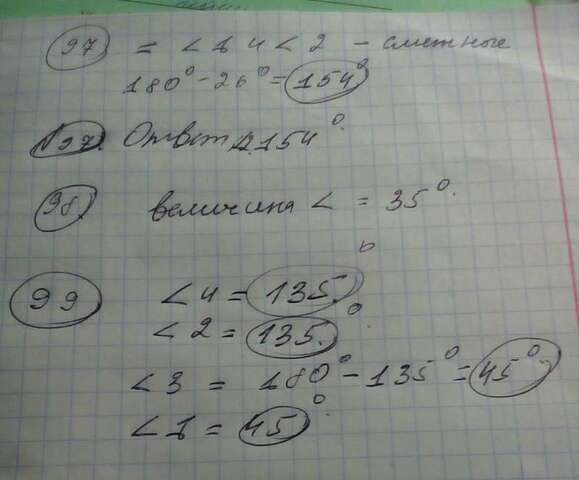 97 = ∠1 и ∠2 - смежные
180° - 26° = 154°
97. Ответ 154°.
98 величина ∠ = 35°.
99 ∠4 = 135.°
∠2 = 135.°
∠3 = 180° - 135° = 45°.
∠1 = 45°